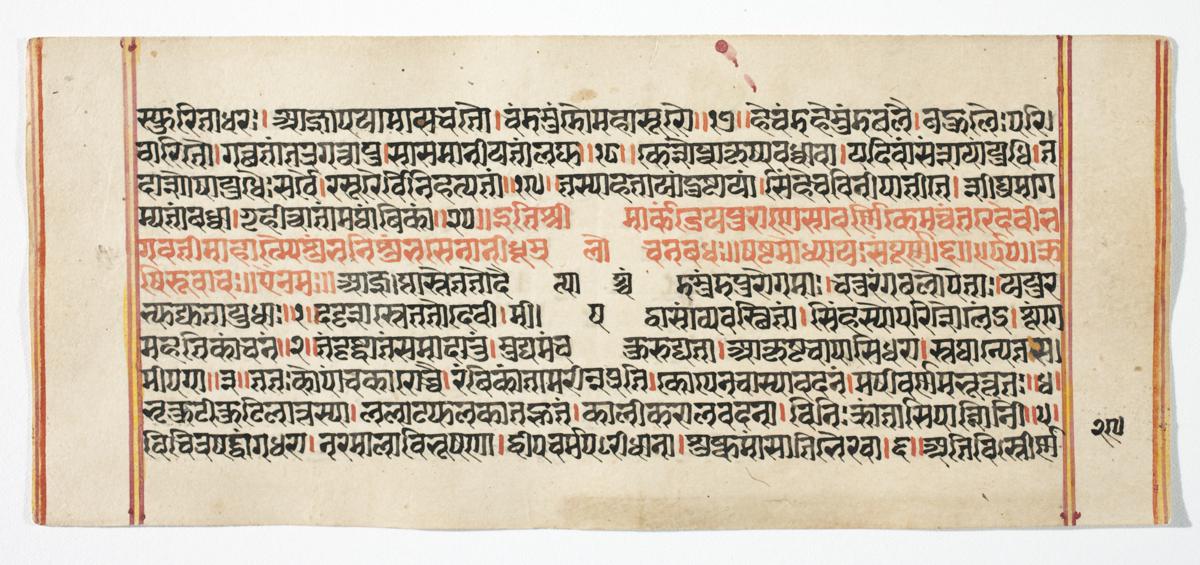 स्फुरिताधरः। आज्ञापयामास च तौ। चंडमुंडौ महासुरौ॥१७॥ हे चंड हे मुंड बलै। बहुलैः परि
वारितौ। गच्छतां तत्र गत्वा च। सा समानीयतां लघु॥१८॥ केशेष्वाकृष्य बध्वा वा। यदि वः संशयो युधि। त
दाशेषायुधैः सर्वै। रसुरैर्विनिहन्यतां॥१९॥ तस्यां हतायां दुष्टायां। सिंहे च विनिपातिते। शीघ्रमाग
म्यतां बध्वा। गृहीत्वा तामथांबिकां॥२०॥ इति श्री मार्कंडेयपुराणे सावर्णिके मन्वंतरे देवीभ
गवती माहात्म्ये धूम्र लो चनवधः॥ षष्टमोध्यायः संपूर्णं॥६॥ ऋ
षिरुवाच॥ आज्ञप्तास्ते ततो दै त्या श्चं डमुंडपुरोगमाः। चतुरंगबलोपेताः। ययुर
भ्युद्यतायुधाः॥१॥ ददृशुस्ते ततो देवी। मी। ष द्धासां व्यवस्थितां। सिंहस्योपरि शैलेंद्र। शृंगे
महति कांचने॥२॥ ते दृष्ट्वा तां समादातुं। मुद्यमं च क्रुरुद्यता। आकृष्टचापासिधरा। स्तथान्ये तत्स।
मीपगा॥३॥ ततः कोपं चकारोच्चै। रंबिका तामरीन्प्रति। कोपेन चास्या वदनं। मषीवर्णमभूत्ततः॥४।
भृकुटीकुटिलात्तस्या। ललाटफलकाद्द्रुतं। काली करालवदना। विनिःक्रांतासिपाशिनी॥५।
विचित्रखट्वांगधरा। नरमालाविभूषणा। द्वीपिचर्मपरीधाना। शुष्कमांसातिभैरवा।६॥ अतिविस्तीर्ण